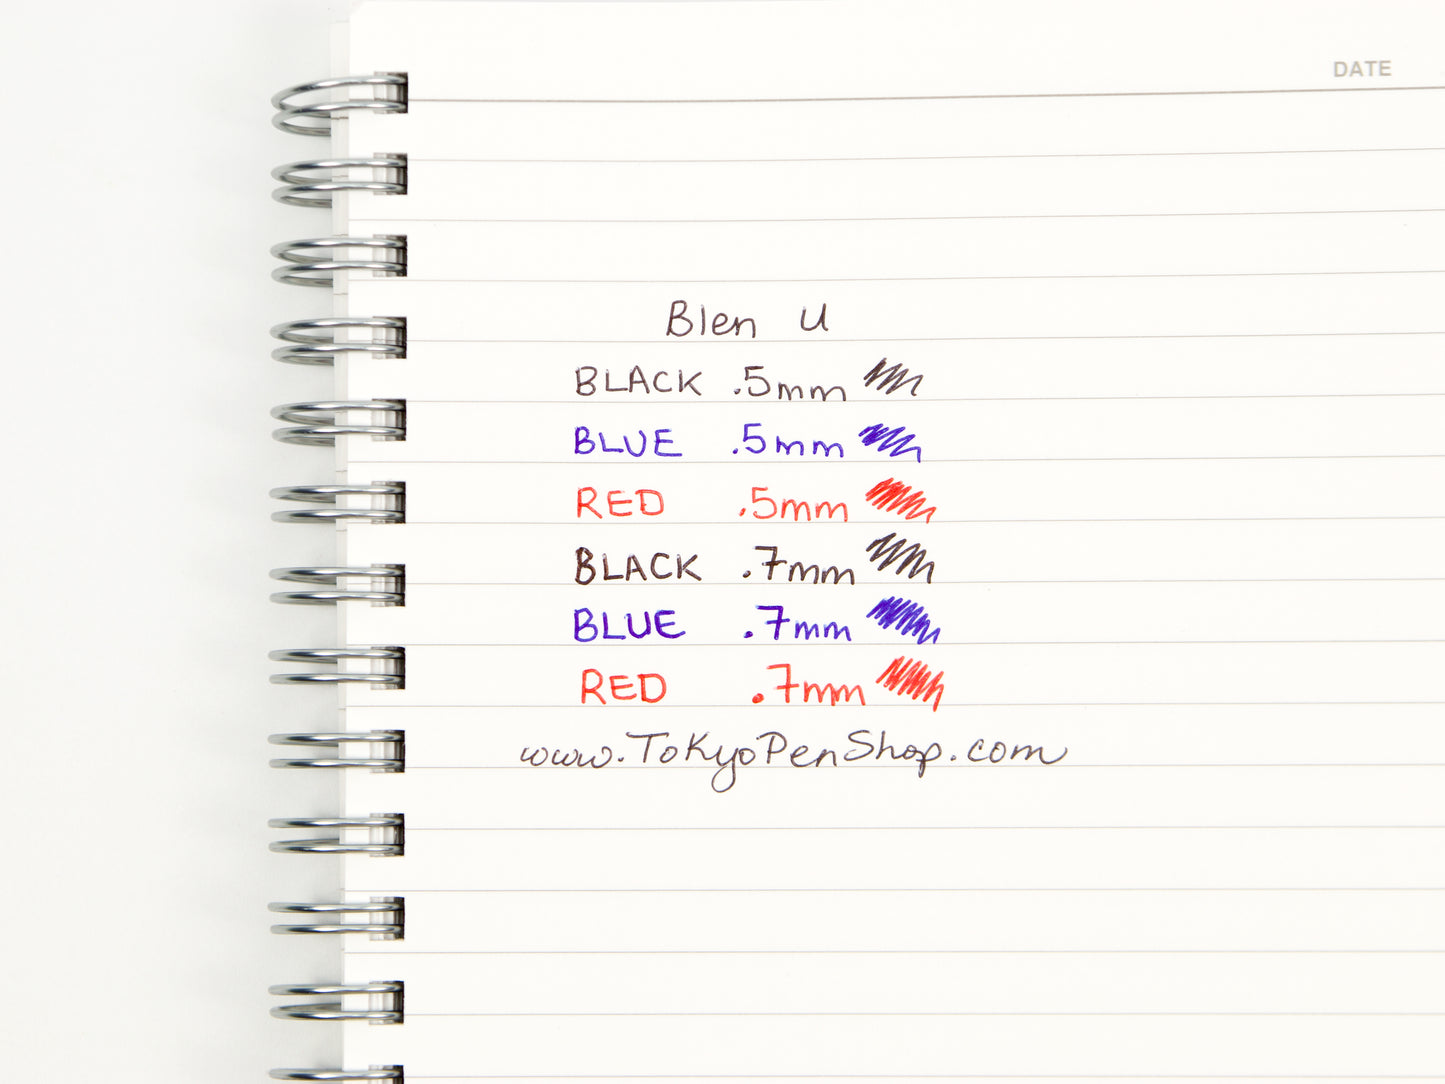 DATE
Blen U
BLACK .5mm
BLUE .5mm
RED .5mm
BLACK .7mm
BLUE .7mm
RED .7mm
www.TokyoPenShop.com